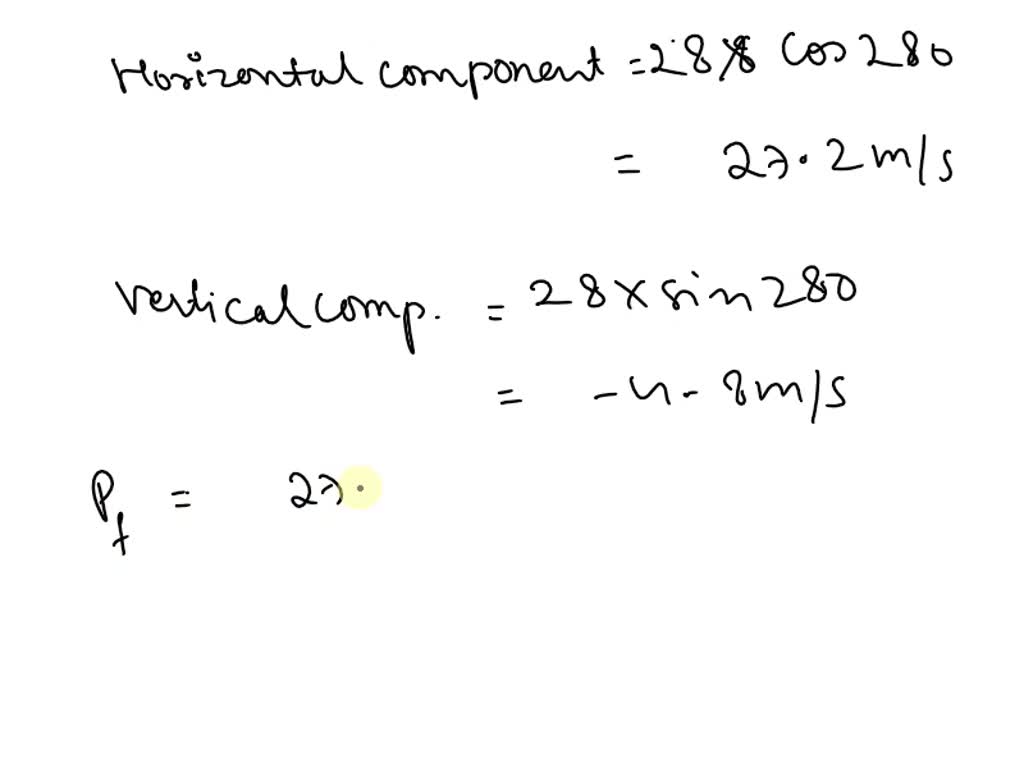 Horizontal component = 28 × cos 280
= 27.2 m/s
Vertical comp. = 28 × sin 280
= -4.8 m/s
Pf = 27.